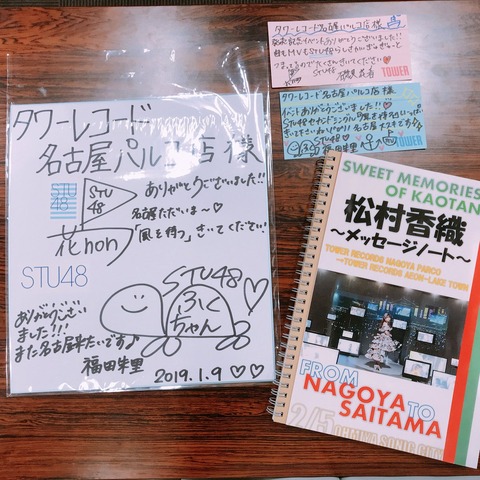 タワーレコード
名古屋パルコ店 様
STU
48
STU
48
ありがとうございました!!
名古屋ただいま〜♡
「風を待つ」きいてください!
花non
STU48
STU48
ふく
ちゃん
ありがとうござい
ました!!!
また名古屋来たいです♪
福田朱里
2019.1.9 ♡♡
タワーレコード名古屋パルコ店 様
STU48
TOWER
タワーレコード 名古屋パルコ店様
イベントありがとうございました!!
STU48
福田朱里
TOWER
SWEET MEMORIES
OF KAOTAN
松村香織
〜メッセージノート〜
TOWER RECORDS NAGOYA PARCO
TOWER RECORDS AEON-LAKE TOWN
FROM
NAGOYA TO
SAITAMA
2/5 OHMIYA SONIC CITY